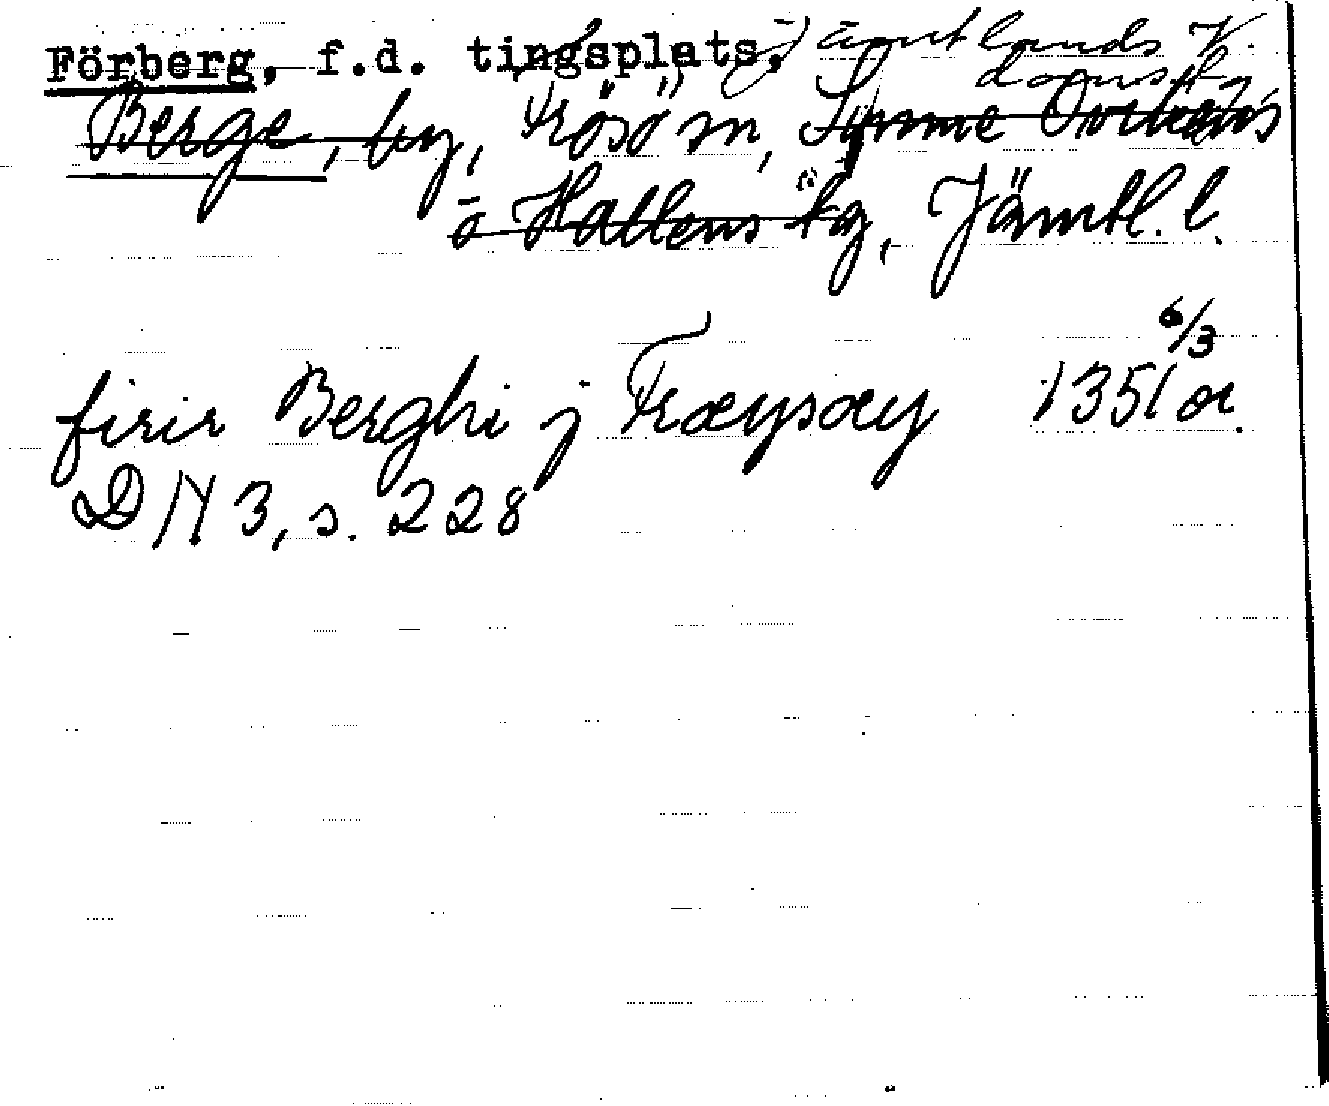 Förberg, f.d. tingsplats, Jämtlands V. domsaga
Berge, by, Frösö sn, Sunne Ovikens
o Hallens tg, Jämtl. l.
6/3
firir Berghi j Frøysøy 1351 or.
DN 3, s. 228